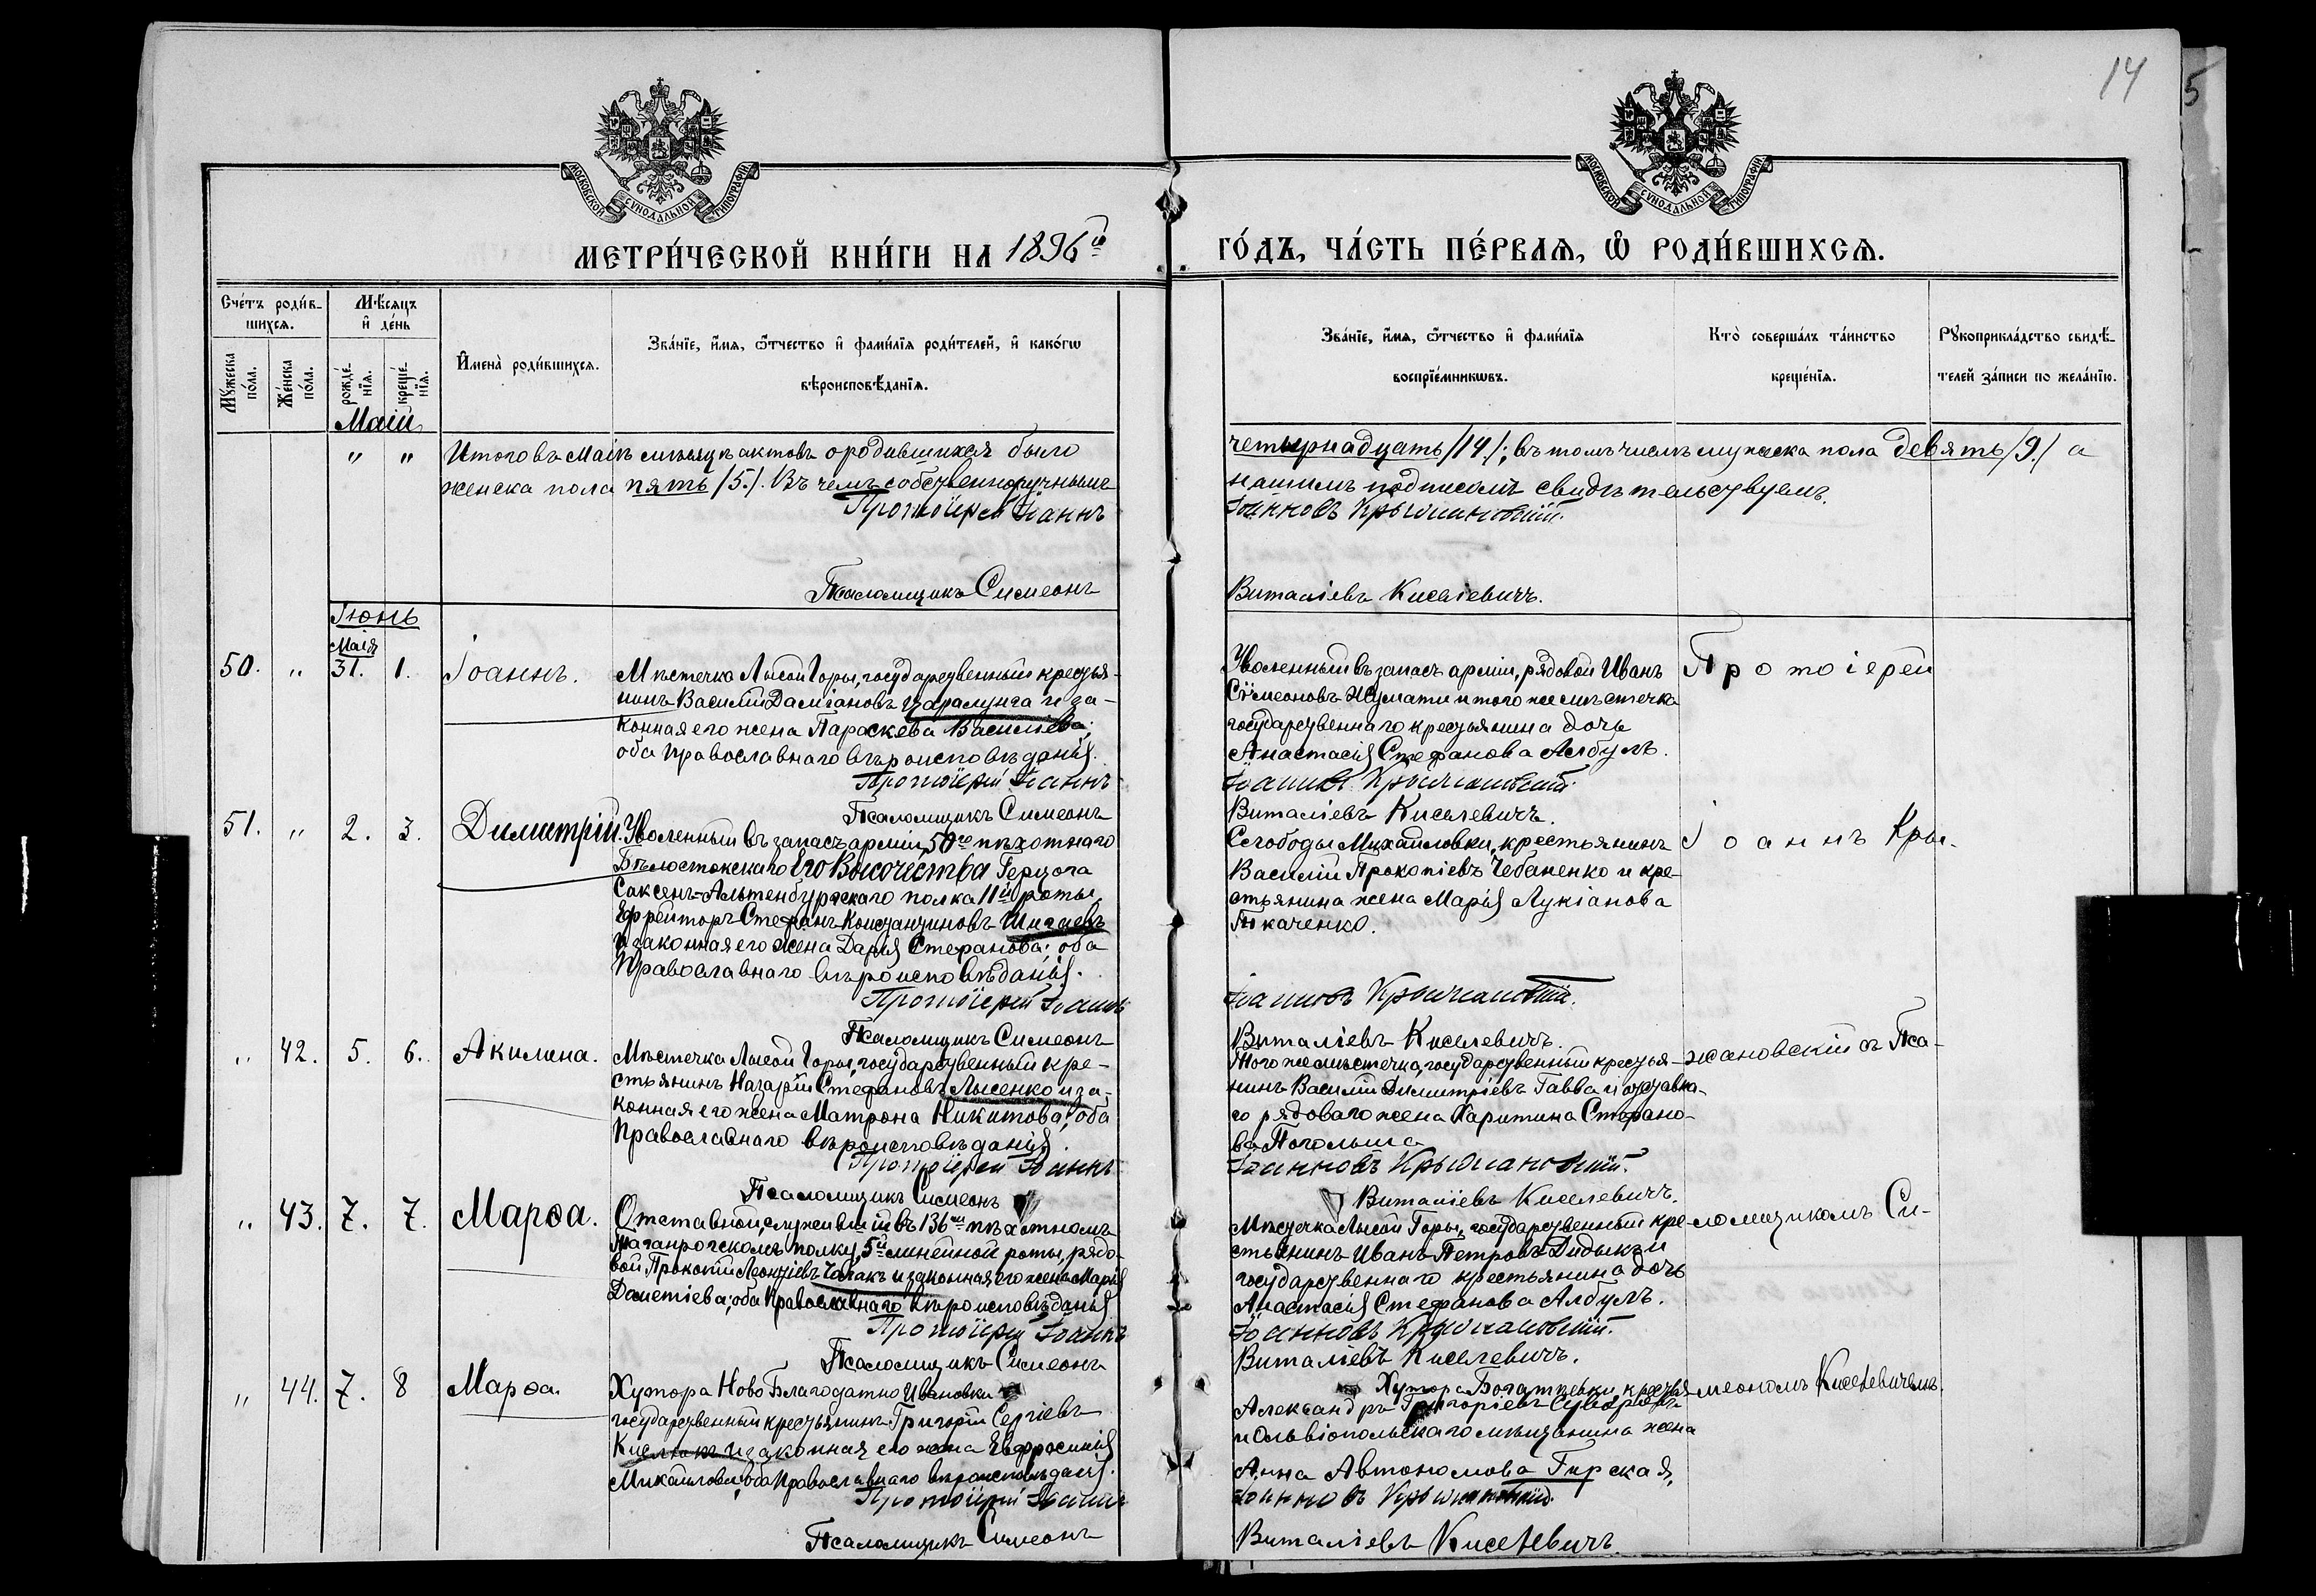 14
5
МОСКОВСКОЙ СУНОДАЛЬНОЙ ТИПОГРАФІИ
МОСКОВСКОЙ СУНОДАЛЬНОЙ ТИПОГРАФІИ
МЕТРИ́ЧЕСКОЙ КНИ́ГИ НА 1896й
ГО́ДЪ, ЧА́СТЬ ПЕ́РВАЯ, Ѡ РОДИ́ВШИХСЯ.
Сче́тъ роди́в-
шихся.
Мѣ́сяцъ
и де́нь
Мꙋ́жеска по́ла.
Же́нска по́ла.
рожде́нїя.
креще́нїя.
Имена̀ роди́вшихся.
Зва́нїе, и́мя, ѻ҆́тчество и фами́лїя роди́телей, и како́гѡ
вѣроисповѣ́данїя.
Зва́нїе, и́мя, ѻ҆́тчество и фами́лїя
воспрїе́мникѡвъ.
Кто̀ соверша́лъ та́инство
креще́нїя.
Рꙋкоприкла́дство свидѣ́-
телей за́писи по жела́нїю.
Маій
" " Итого въ Маѣ мѣсяцѣ актовъ о родившихся было
женска пола пять /5./. Въ чемъ собственноручнымъ
Протоіерей Іоаннъ
Псаломщикъ Симеонъ
четырнадцать /14/; въ томъ числѣ мужеска пола девять /9./ а
нашимъ подписомъ свидѣтельствуемъ.
Іоанновъ Крыжановскій.
Виталіевъ Киселевичъ.
Іюнь
Маія
50. " 31. 1. Іоаннъ.
Мѣстечка Лысой Горы, государственный крестья-
нинъ Василій Даміановъ Царалунга и за-
конная его жена Параскева Василіева;
оба православнаго вѣроисповѣданія.
Протоіерей Іоаннъ
Псаломщикъ Симеонъ
Уволенный въ запасъ арміи, рядовой Иванъ
Симеоновъ и того же мѣстечка
государственнаго крестьянина дочь
Анастасія Стефанова Албулъ.
Іоанновъ Крыжановскій.
Виталіевъ Киселевичъ.
Протоіерей
51. " 2. 3. Димитрій.
Уволенный въ запасъ арміи, 50го пѣхотнаго
Бѣлостокскаго Его Высочества Герцога
Саксенъ-Альтенбургскаго полка 11й роты,
Ефрейторъ Стефанъ Константиновъ
и законная его жена Дарія Стефанова; оба
Православнаго вѣроисповѣданія.
Протоіерей Іоаннъ
Псаломщикъ Симеонъ
Слободы Михайловки, крестьянинъ
Василій Прокопіевъ Чебаненко и кре-
стьянина жена Марія Лукіанова
Ткаченко.
Іоанновъ Крыжановскій.
Виталіевъ Киселевичъ.
Іоаннъ Кры-
" 42. 5. 6. Акилина.
Мѣстечка Лысой Горы, государственный кре-
стьянинъ Назарій Стефановъ Лысенко и за-
конная его жена Матрона Никитова; оба
Православнаго вѣроисповѣданія.
Протоіерей Іоаннъ
Псаломщикъ Симеонъ
Того же мѣстечка, государственный крестья-
нинъ Василій Димитріевъ Гавва и отставна-
го рядоваго жена Харитина Стефано-
ва
Іоанновъ Крыжановскій.
Виталіевъ Киселевичъ.
жановскій съ Пса-
" 43. 7. 7. Марѳа.
Отставной, служившій въ 136мъ пѣхотномъ
Таганрогскомъ полку, 5й линейной роты, рядо-
вой, Прокопій Леонтіевъ и законная его жена Марія
Дометіева; оба Православнаго вѣроисповѣданія
Протоіерей Іоаннъ
Псаломщикъ Симеонъ
Мѣстечка Лысой Горы, государственный кре-
стьянинъ Иванъ Петровъ Дидыкъ и
государственнаго крестьянина дочь
Анастасія Стефанова Албулъ.
Іоанновъ Крыжановскій.
Виталіевъ Киселевичъ.
ломщикомъ Си-
" 44. 7. 8 Марѳа.
Хутора Ново Благодатно Ивановки
государственный крестьянинъ Григорій Сергіевъ
и законная его жена Евфросинія
Михаилова; оба Православнаго вѣроисповѣданія.
Протоіерей Іоаннъ
Псаломщикъ Симеонъ
Хутора
Александръ Григоріевъ
и Ольвіопольскаго мѣщанина жена
Анна Автономова Гирская,
Іоанновъ Крыжановскій.
Виталіевъ Киселевичъ
меономъ Киселевичемъ.